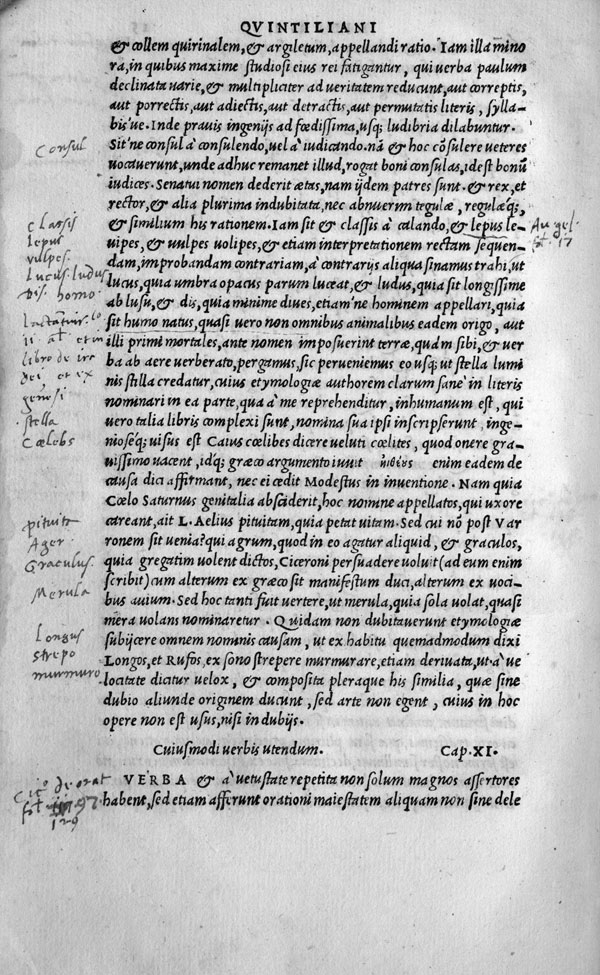 QVINTILIANI
& collem quirinalem, & argiletum, appellandi ratio. Iam illa mino
ra, in quibus maxime studiosi eius rei fatigantur, qui verba paulum
declinata uarie, & multipliciter ad ueritatem reducunt, aut correptis,
aut porrectis, aut adiectis, aut detractis, aut permutatis literis, sylla-
bis'ue. Inde prauis ingenijs ad fœdissima, usq; ludibria dilabuntur.
Sit'ne consul à consulendo, uel à iudicando. nā & hoc cōsulere ueteres
Consul
uocauerunt, unde adhuc remanet illud, rogat boni consulas, idest bonū
iudices. Senatui nomen dederit ætas, nam ijdem patres sunt. & rex, et
rector, & alia plurima indubitata, nec abnuerim tegulæ, regulæq;,
& similium his rationem. Iam sit & classis à calando, & lepus le-
Classis
lepus
uipes, & uulpes uolipes, & etiam interpretationem rectam sequen-
vulpes.
dam, improbandam contrariam, à contrarijs aliqua sinamus trahi, ut
lucus, quia umbra opacus parum luceat, & ludus, quia sit longissime
Lucus. ludus
ab lusu, & dis, quia minime diues, etiam'ne hominem appellari, quia
Dis. homo
sit humo natus, quasi uero non omnibus animalibus eadem origo, aut
illi primi mortales, ante nomen imposuerint terræ, quàm sibi, & uer
ba ab aere uerberato, pergamus, sic perueniemus eo usq; ut stella lumi
libro de ira
dei, et ex
nis stilla credatur, cuius etymologiæ authorem clarum sanè in literis
nominari in ea parte, qua à me reprehenditur, inhumanum est, qui
uero talia libris complexi sunt, nomina sua ipsi inscripserunt, inge-
stella
nioseq; uisus est Caius cœlibes dicere ueluti cœlites, quod onere gra-
Cœlebs
uissimo uacent, idq; græco argumento iuuit ἠϊθέους enim eadem de
causa dici affirmant, nec ei cedit Modestus in inuentione. Nam quia
Cœlo Saturnus genitalia absciderit, hoc nomine appellatos, qui uxore
careant, ait L. Aelius pituitam, quia petat uitam. Sed cui nō post Var
pituita
ronem sit uenia? qui agrum, quod in eo agatur aliquid, & graculos,
Ager
quia gregatim uolent dictos, Ciceroni persuadere uoluit (ad eum enim
Graculus.
scribit) cum alterum ex græco sit manifestum duci, alterum ex uoci-
Merula
bus auium. Sed hoc tanti fuit uertere, ut merula, quia sola uolat, quasi
mera uolans nominaretur. Quidam non dubitauerunt etymologiæ
subijcere omnem nominis causam, ut ex habitu quemadmodum dixi
Longus
Longos, et Rufos, ex sono strepere murmurare, etiam deriuata, ut à ue
strepo
locitate dicitur uelox, & composita pleraque his similia, quæ sine
murmuro
dubio aliunde originem ducunt, sed arte non egent, cuius in hoc
opere non est usus, nisi in dubijs.
Cuiusmodi verbis utendum. Cap. XI.
VERBA & à uetustate repetita non solum magnos assertores
habent, sed etiam afferunt orationi maiestatem aliquam non sine dele
129